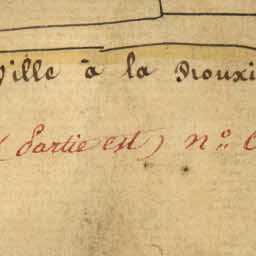 ville à la Siouxi
(Partie est) nº